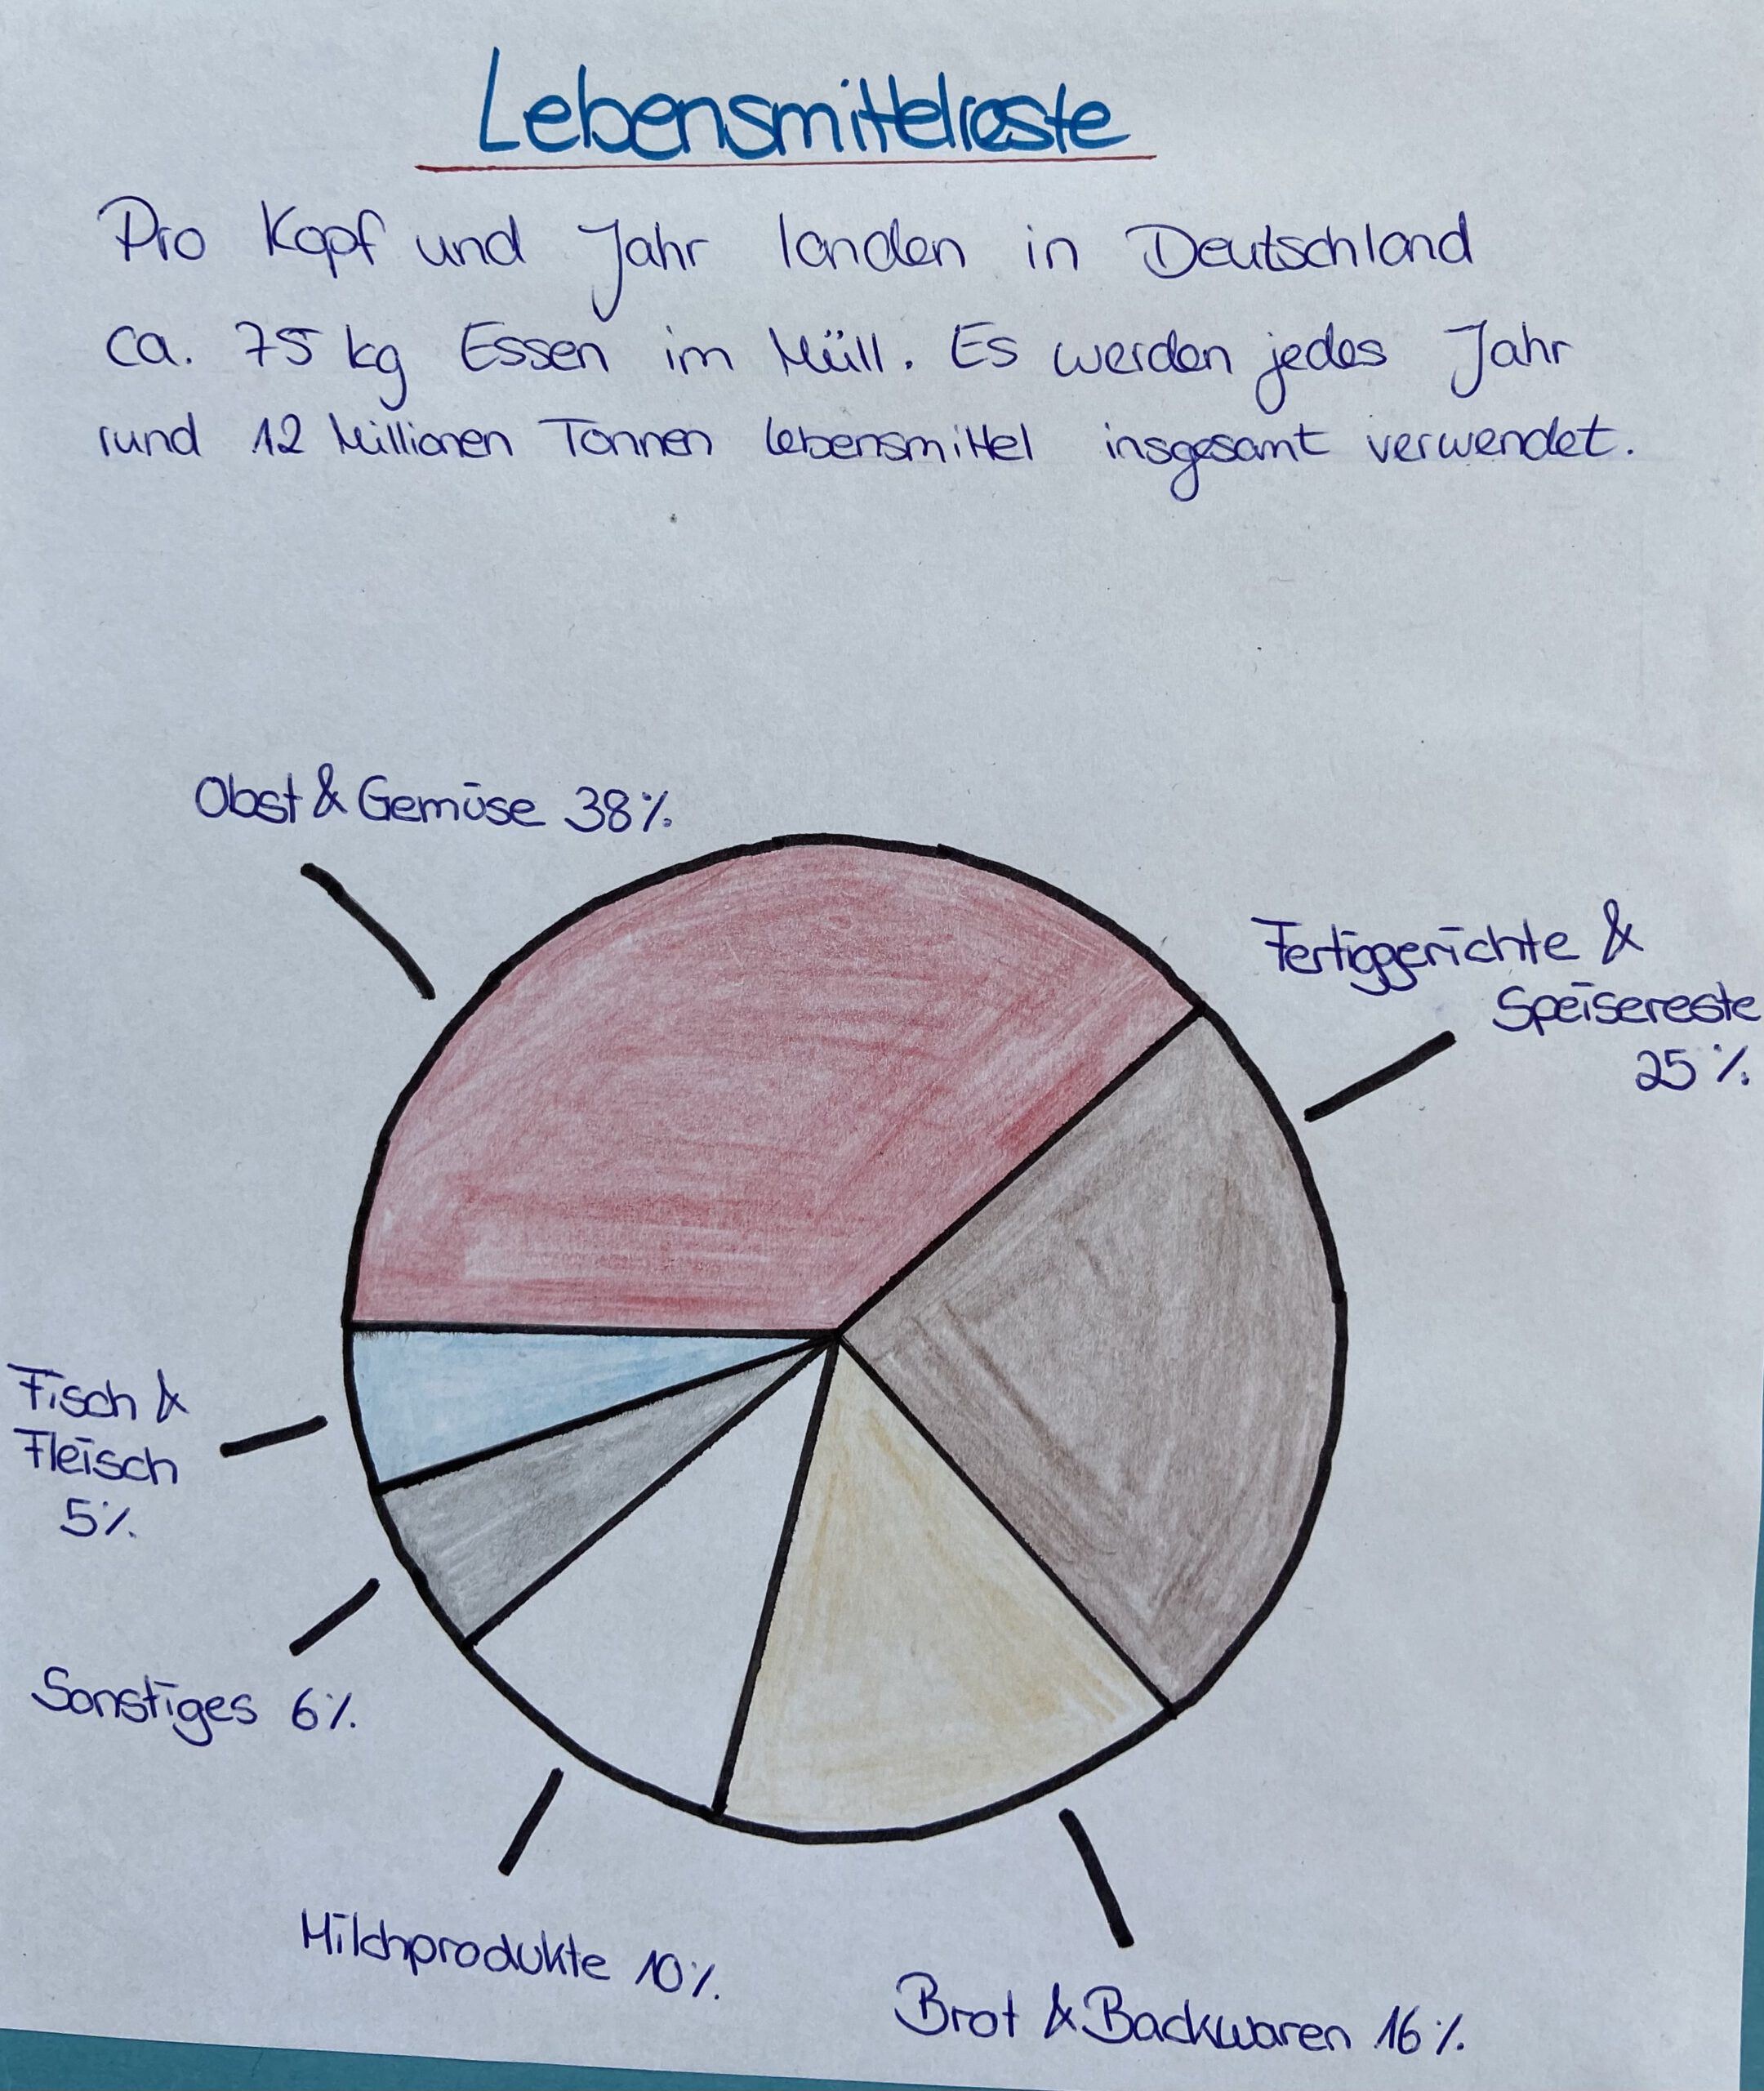 Lebensmittelreste
Pro Kopf und Jahr landen in Deutschland
ca. 75 kg Essen im Müll. Es werden jedes Jahr
rund 12 Millionen Tonnen Lebensmittel insgesamt verwendet.
Obst & Gemüse 38%
Fertiggerichte &
Speisereste
25%
Fisch &
Fleisch
5%
Sonstiges 6%
Milchprodukte 10%
Brot & Backwaren 16%